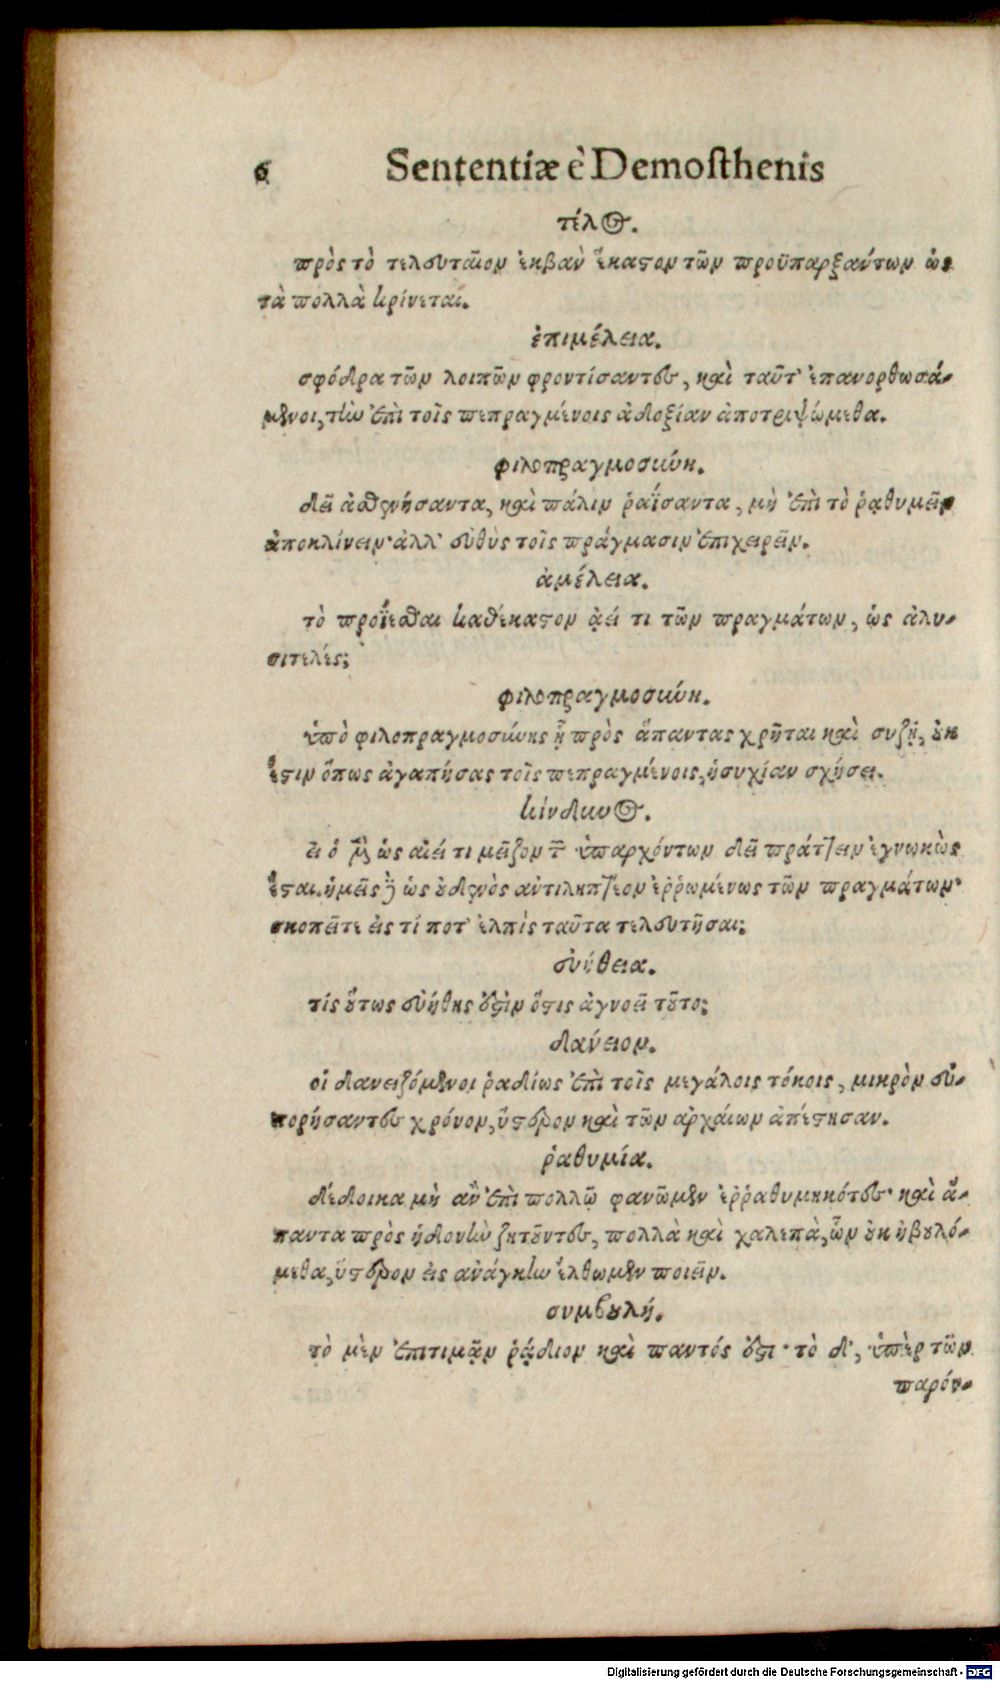 6 Sententiæ è Demosthenis
τέλος.
πρὸς τὸ τελευταῖον ἐκβὰν ἕκαστον τῶν προϋπαρξάντων ὡς
τὰ πολλὰ κρίνεται.
ἐπιμέλεια.
σφόδρα τῶν λοιπῶν φροντίσαντες, καὶ ταῦτ' ἐπανορθωσά-
μενοι, τὴν ἐπὶ τοῖς πεπραγμένοις ἀδοξίαν ἀποτριψώμεθα.
φιλοπραγμοσύνη.
δεῖ ἀσθενήσαντα, καὶ πάλιν ῥαΐσαντα, μὴ ἐπὶ τὸ ῥᾳθυμεῖν
ἀποκλίνειν· ἀλλ' εὐθὺς τοῖς πράγμασιν ἐπιχειρεῖν.
ἀμέλεια.
τὸ προΐεσθαι καθέκαστον ἀεί τι τῶν πραγμάτων, ὡς ἀλυ-
σιτελές;
φιλοπραγμοσύνη.
ὑπὸ φιλοπραγμοσύνης ᾗ πρὸς ἅπαντας χρῆται καὶ συζῇ, οὐκ
ἔστιν ὅπως ἀγαπήσας τοῖς πεπραγμένοις, ἡσυχίαν σχήσει.
κίνδυνος.
εἰ ὁ μὲν ὡς αἰεί τι μεῖζον τῶν ὑπαρχόντων δεῖ πράττειν ἐγνωκὼς
ἔσται. ἡμεῖς δὲ ὡς οὐδενὸς ἀντιληπτέον ἐρρωμένως τῶν πραγμάτων·
σκοπεῖτε εἰς τί ποτ' ἐλπὶς ταῦτα τελευτῆσαι;
εὐήθεια.
τίς οὕτως εὐήθης ἐστὶν ὅστις ἀγνοεῖ τοῦτο;
δανεῖον.
οἱ δανειζόμενοι ῥαδίως ἐπὶ τοῖς μεγάλοις τόκοις, μικρὸν εὐ-
πορήσαντες χρόνον, ὕστερον καὶ τῶν ἀρχαίων ἀπέστησαν.
ῥαθυμία.
δέδοικα μὴ ἂν ἐπὶ πολλῷ φανῶμεν ἐρραθυμηκότες· καὶ ἅ-
παντα πρὸς ἡδονὴν ζητοῦντες, πολλὰ καὶ χαλεπὰ, ὧν οὐκ ἠβουλό-
μεθα, ὕστερον εἰς ἀνάγκην ἔλθωμεν ποιεῖν.
συμβουλή.
τὸ μὲν ἐπιτιμᾷν ῥᾴδιον καὶ παντός ἐστι· τὸ δ', ὑπὲρ τῶν
παρόν-
Digitalisierung gefördert durch die Deutsche Forschungsgemeinschaft - DFG